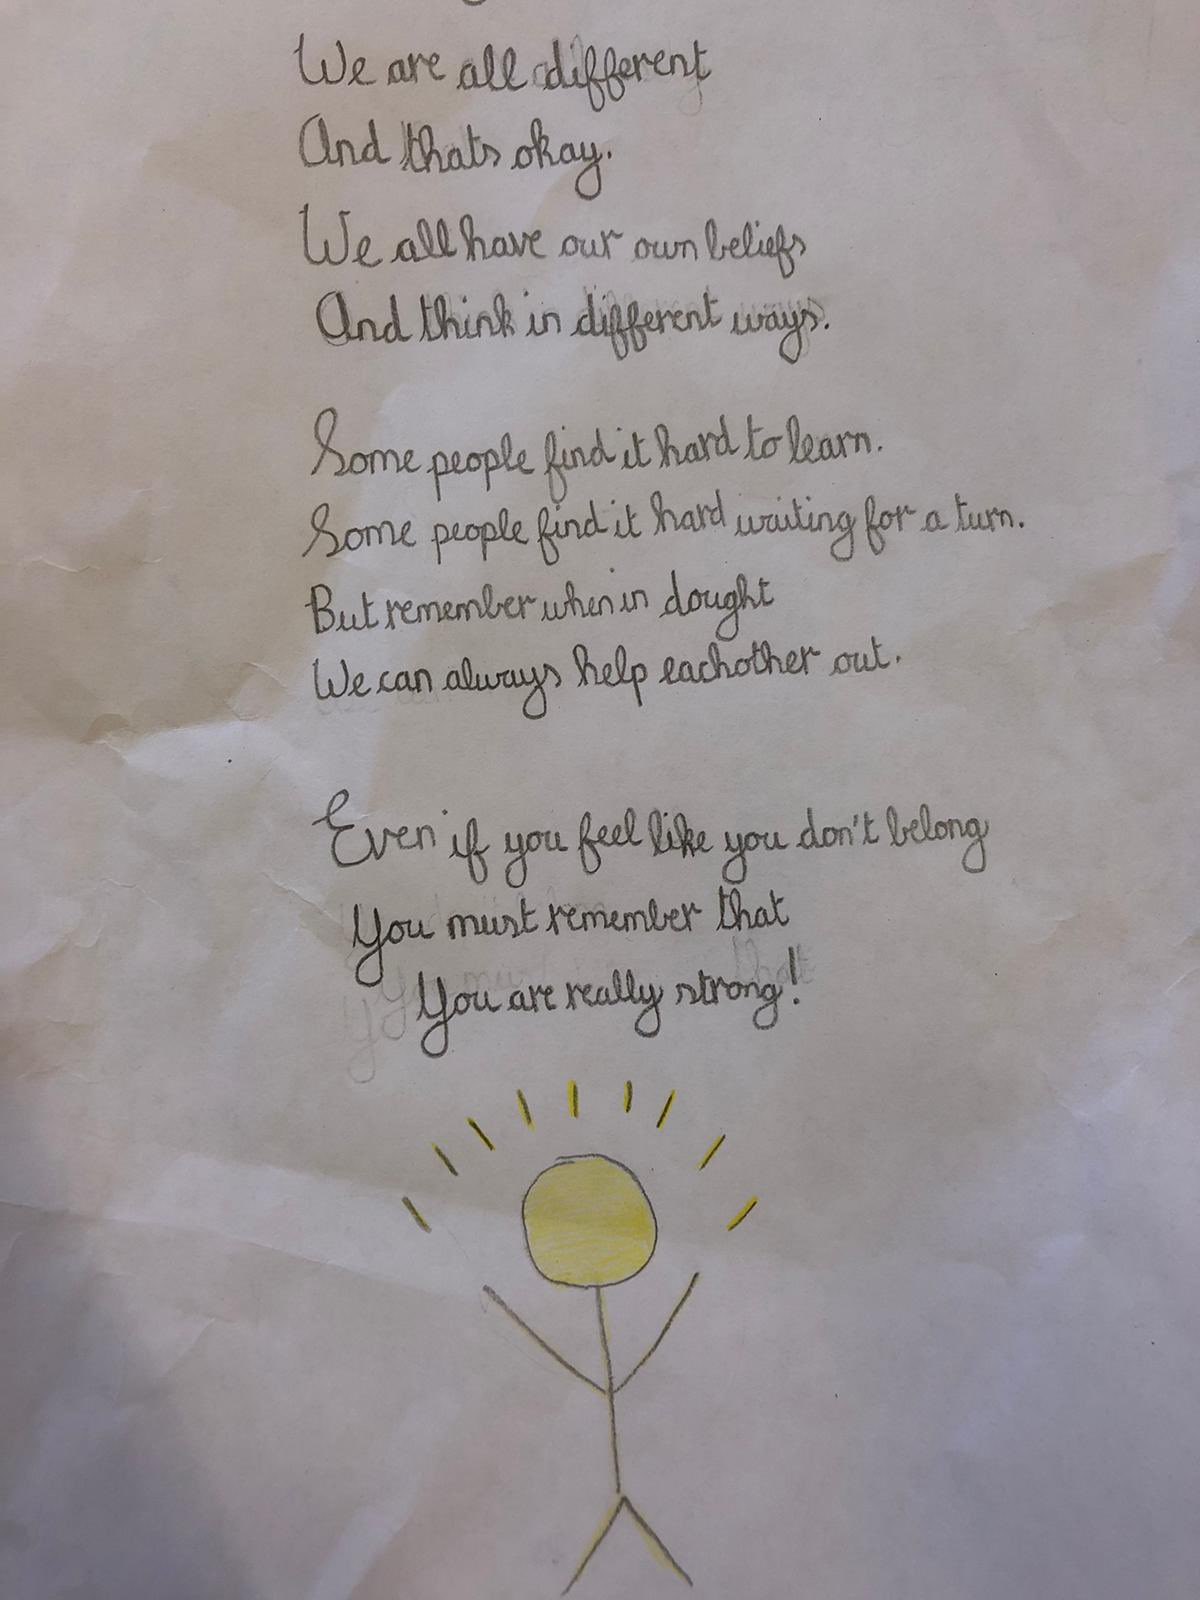 We are all different
And thats okay.
We all have our own beliefs
And think in different ways.
Some people find it hard to learn.
Some people find it hard waiting for a turn.
But remember when in dought
We can always help eachother out.
Even if you feel like you don't belong
You must remember that
You are really strong!